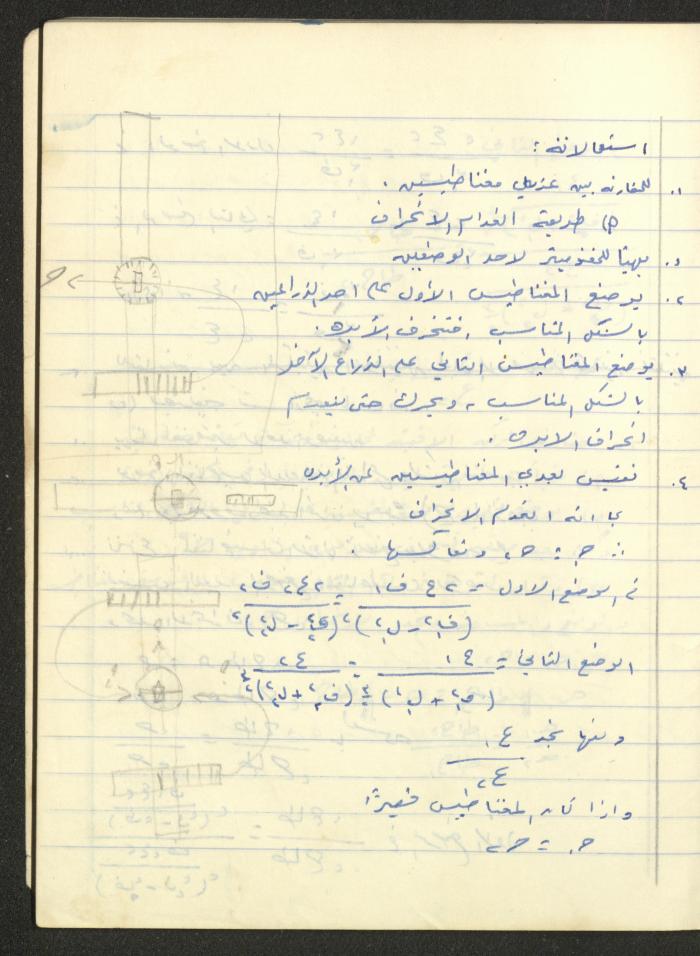 استعمالاته :
١. للمقارنة بين عزمي مغناطيسين .
(P) طريقة انعدام الانحراف
١. يهيأ المغنوميتر لاحد الوضعين
٢. يوضع المغناطيس الأول على احد الذراعين
بالشكل المناسب فتنحرف الأبرة .
٣. يوضع المغناطيس الثاني على الذراع الآخر
بالشكل المناسب ، ويحرك حتى ينعدم
انحراف الابرة .
٤. نقيس بعدي المغناطيسين عن الأبرة
بما انه انعدم الانحراف
∴ ح١ = ح٢ وتعاكسها .
في الوضع الاول = ٢ع١ ف١ / (ف١٢ - ل١٢)٢ = ٢ع٢ ف٢ / (ف٢٢ - ل٢٢)٢
الوضع الثاني = ع١ / (ف١٢ + ل١٢)٣/٢ = ع٢ / (ف٢٢ + ل٢٢)٣/٢
ومنها نجد ع١ / ع٢
واذا كان المغناطيس قصيرًا
ح١ = ح٢